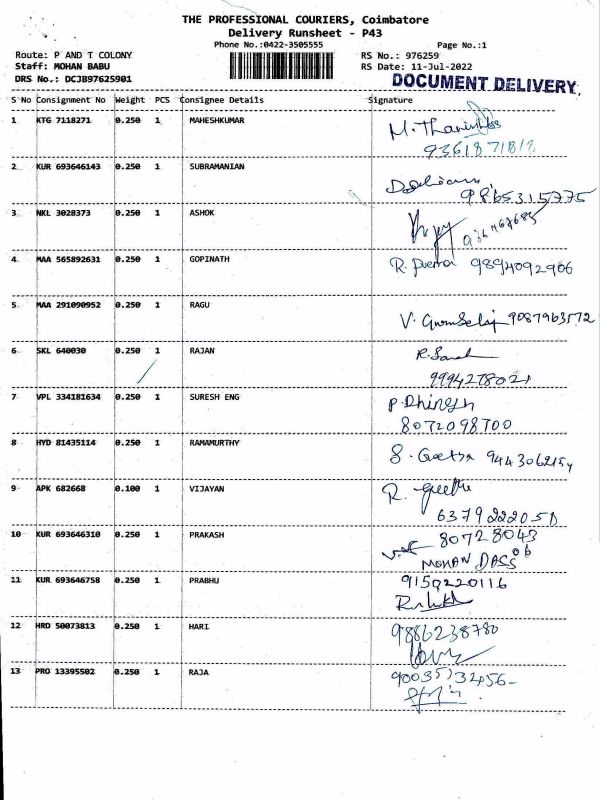 THE PROFESSIONAL COURIERS, Coimbatore
Delivery Runsheet - P43
Phone No.:0422-3505555
Page No.:1
Route: P AND T COLONY
RS No.: 976259
Staff: MOHAN BABU
RS Date: 11-Jul-2022
DRS No.: DCJB97625901
DOCUMENT DELIVERY
S No Consignment No Weight PCS Consignee Details Signature
1 KTG 7118271 0.250 1 MAHESHKUMAR
2 KUR 693646143 0.250 1 SUBRAMANIAN
9865315775
3 NKL 3028373 0.250 1 ASHOK
4 MAA 565892631 0.250 1 GOPINATH R. 9894092906
5 MAA 291090952 0.250 1 RAGU
V. 9087963572
6 SKL 640030 0.250 1 RAJAN
7 VPL 334181634 0.250 1 SURESH ENG
8072098700
8 HYD 81435114 0.250 1 RAMAMURTHY
9 APK 682668 0.100 1 VIJAYAN R. Geetha
10 KUR 693646310 0.250 1 PRAKASH 80728043
06
MOHAN DASS
11 KUR 693646758 0.250 1 PRABHU 9150220116
12 HRD 50073813 0.250 1 HARI 9886238780
13 PRO 13395502 0.250 1 RAJA